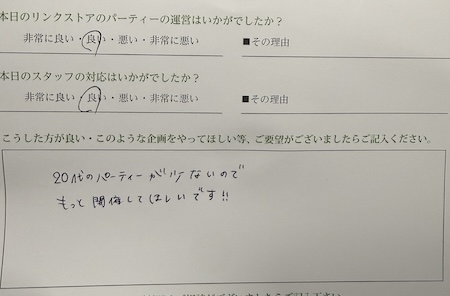 本日のリンクストアのパーティーの運営はいかがでしたか？
非常に良い・良い・悪い・非常に悪い
■その理由
本日のスタッフの対応はいかがでしたか？
非常に良い・良い・悪い・非常に悪い
■その理由
こうした方が良い・このような企画をやってほしい等、ご要望がございましたらご記入ください。
20代のパーティーが少ないので
もっと開催してほしいです!!